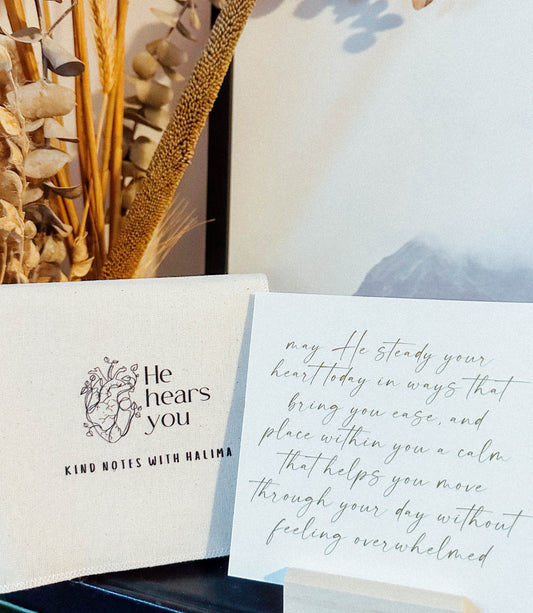 He
hears
you
KIND NOTES WITH HALIMA
may He steady your
heart today in ways that
bring you ease, and
place within you a calm
that helps you move
through your day without
feeling overwhelmed